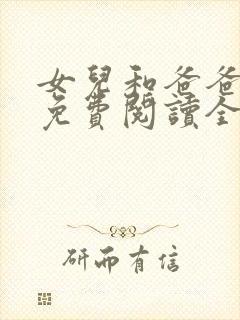 女兒和爸爸
免費閱讀全
研而有信